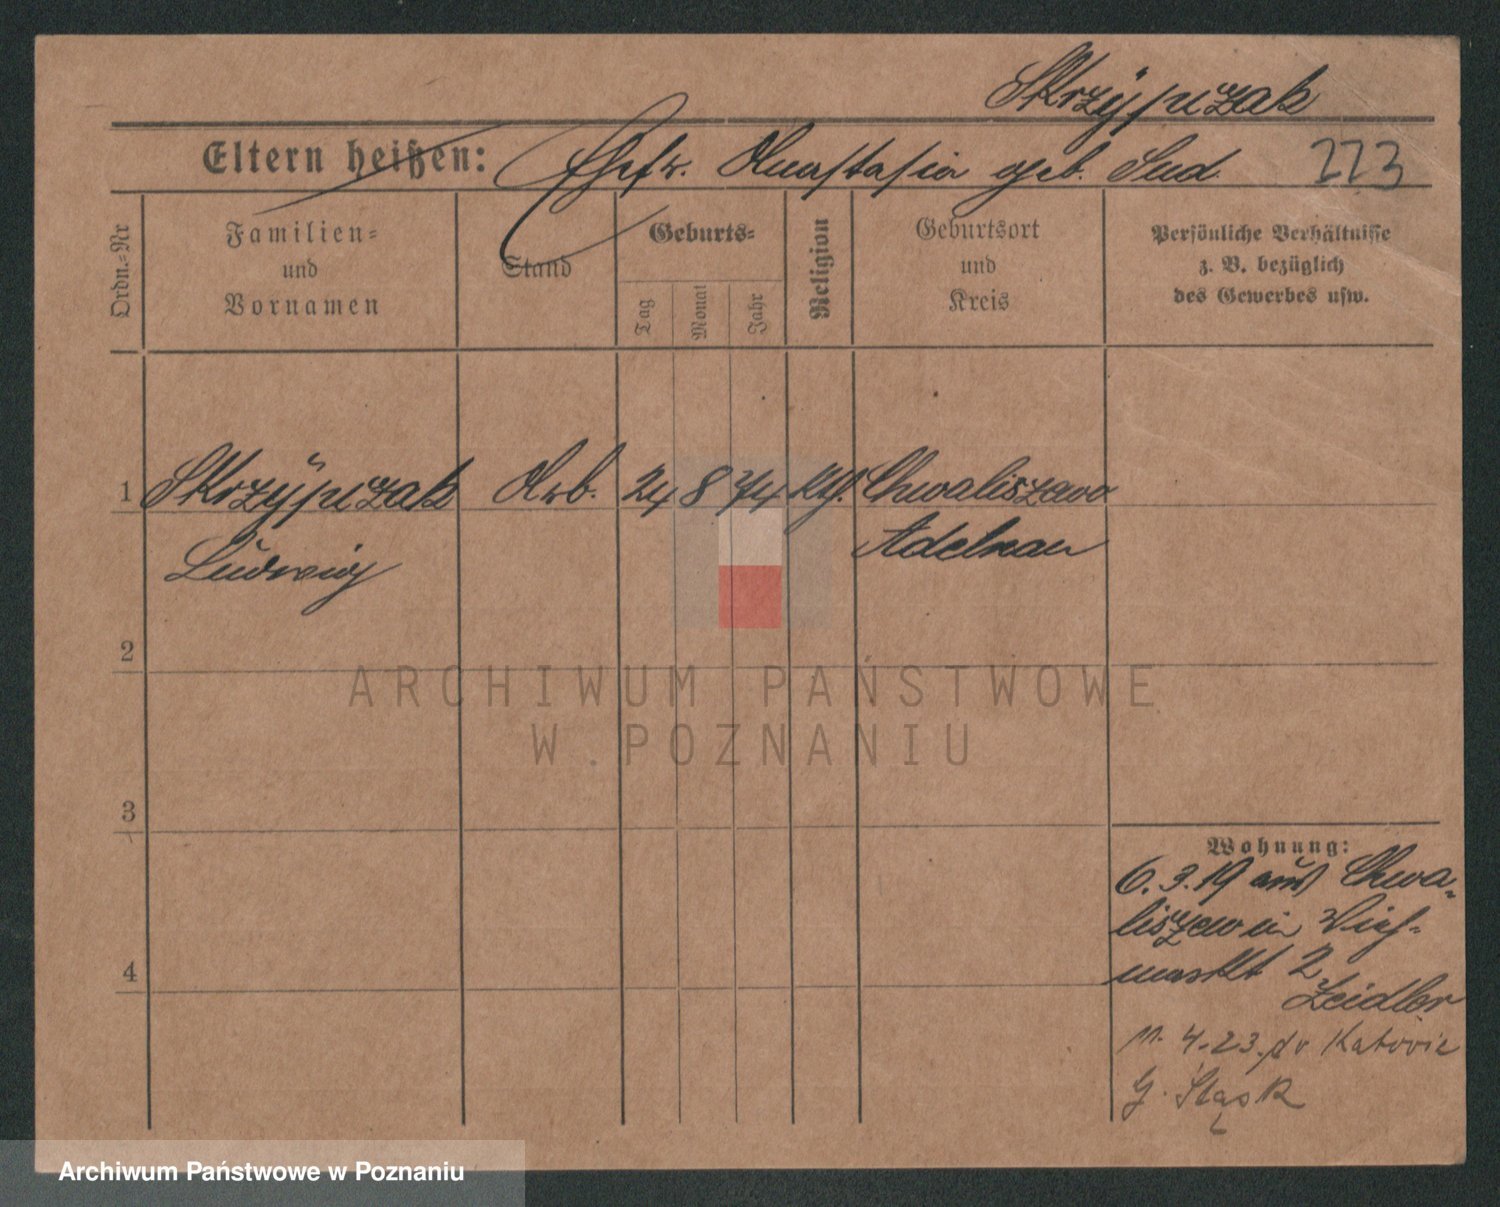 Skrzypczak
Eltern heißen: Ehefr. Anastasia geb. Sud 223
Ordn.=Nr
Familien=
und
Vornamen
Stand
Geburts=
Tag
Monat
Jahr
Religion
Geburtsort
und
Kreis
Persönliche Verhältnisse
z. B. bezüglich
des Gewerbes usw.
1 Skrzypczak Arb. 24 8 74 kth. Chwaliszewo
Ludwig Adelnau
2
ARCHIWUM PAŃSTWOWE
W POZNANIU
3
Wohnung:
6.3.19 aus Chwa-
liszewo in Vieh-
markt 2
Zeidler
11. 4. 23. do Katowic
G. Śląsk
4
Archiwum Państwowe w Poznaniu